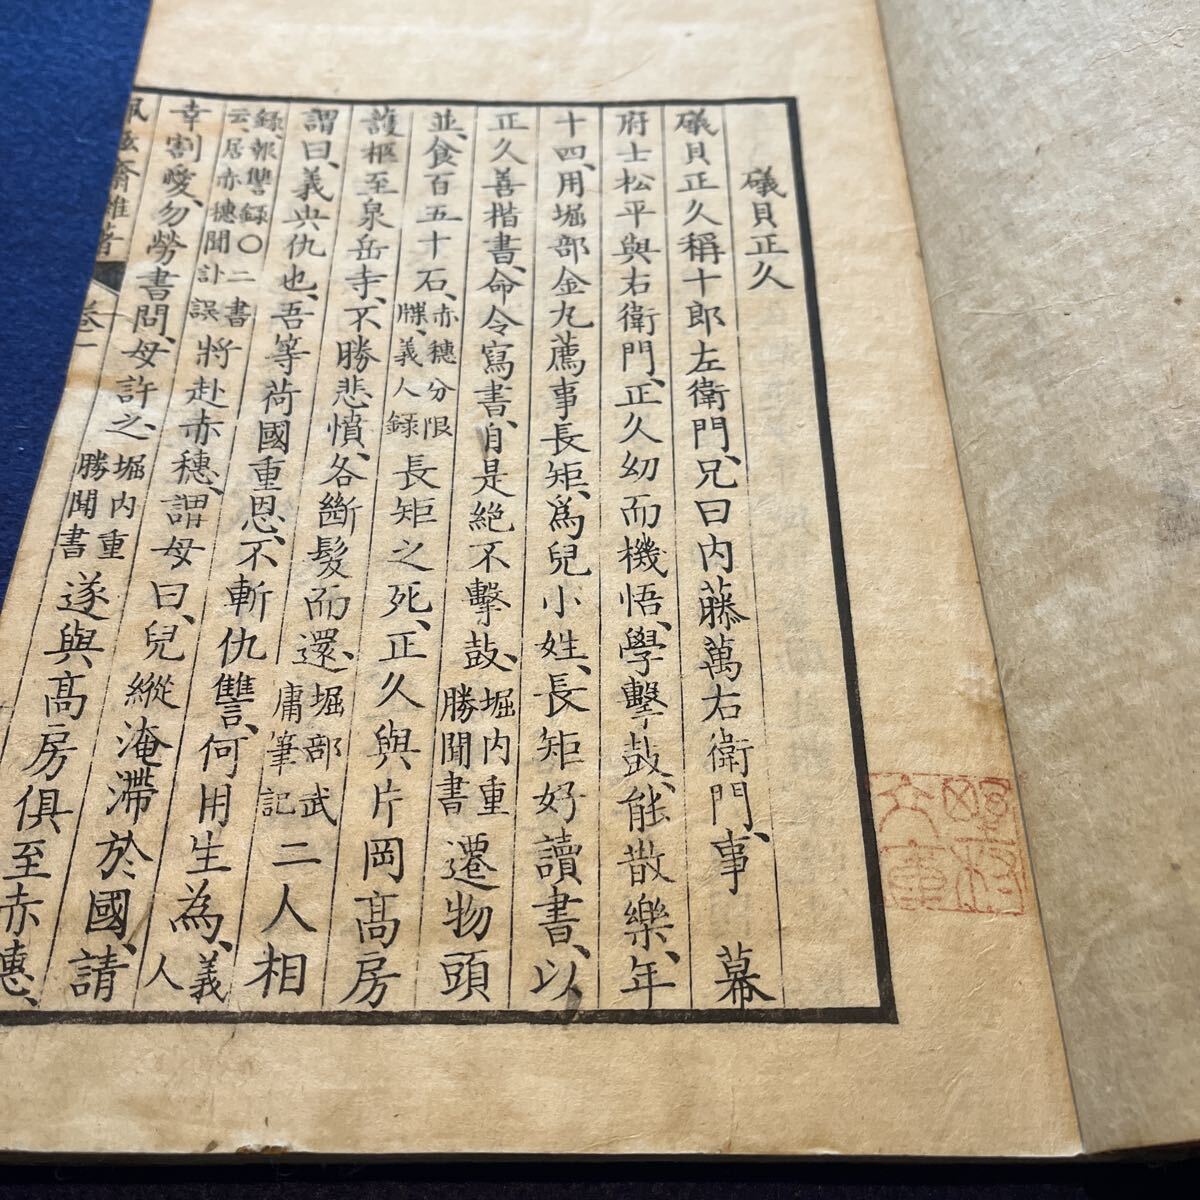 礒貝正久
礒貝正久稱十郎左衛門、兄曰内藤萬右衛門、事　幕
府士松平與右衛門、正久幼而機悟、學擊鼓、能散樂、年
十四、用堀部金丸薦事長矩、爲兒小姓、長矩好讀書、以
正久善楷書、命令寫書、自是絶不擊鼓、堀内重勝聞書遷物頭
並、食百五十石、赤穗分限牒、義人錄長矩之死、正久與片岡高房
護柩至泉岳寺、不勝悲憤、各斷髮而還、堀部武庸筆記二人相
謂曰、義與仇也、吾等荷國重恩、不斬仇讐、何用生為、義人
錄、報讐錄〇二書云、居赤穗聞訃誤將赴赤穗、謂母曰、兒縱淹滯於國、請
幸割愛、勿勞書問、母許之、堀内重勝聞書遂與高房俱至赤穗、
齋雜著　卷一